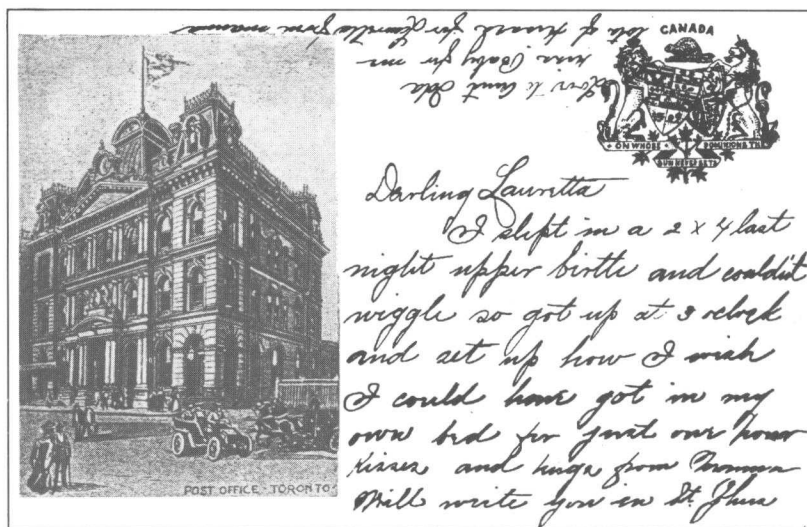 CANADA
ON WHOSE DOMINIONS TH
SUN NEVER SETS
Darling Lauretta
I slept in a 2 x 4 last
night upper birtle and couldn't
wiggle so got up at 3 oclock
and set up how I wish
I could have got in my
own bed for just one hour
Kisses and hugs from Momma
Will write you in St. Johns
Love to Aunt Ida
kiss Baby for me
lots of for Lauretta from mama
POST OFFICE - TORONTO -